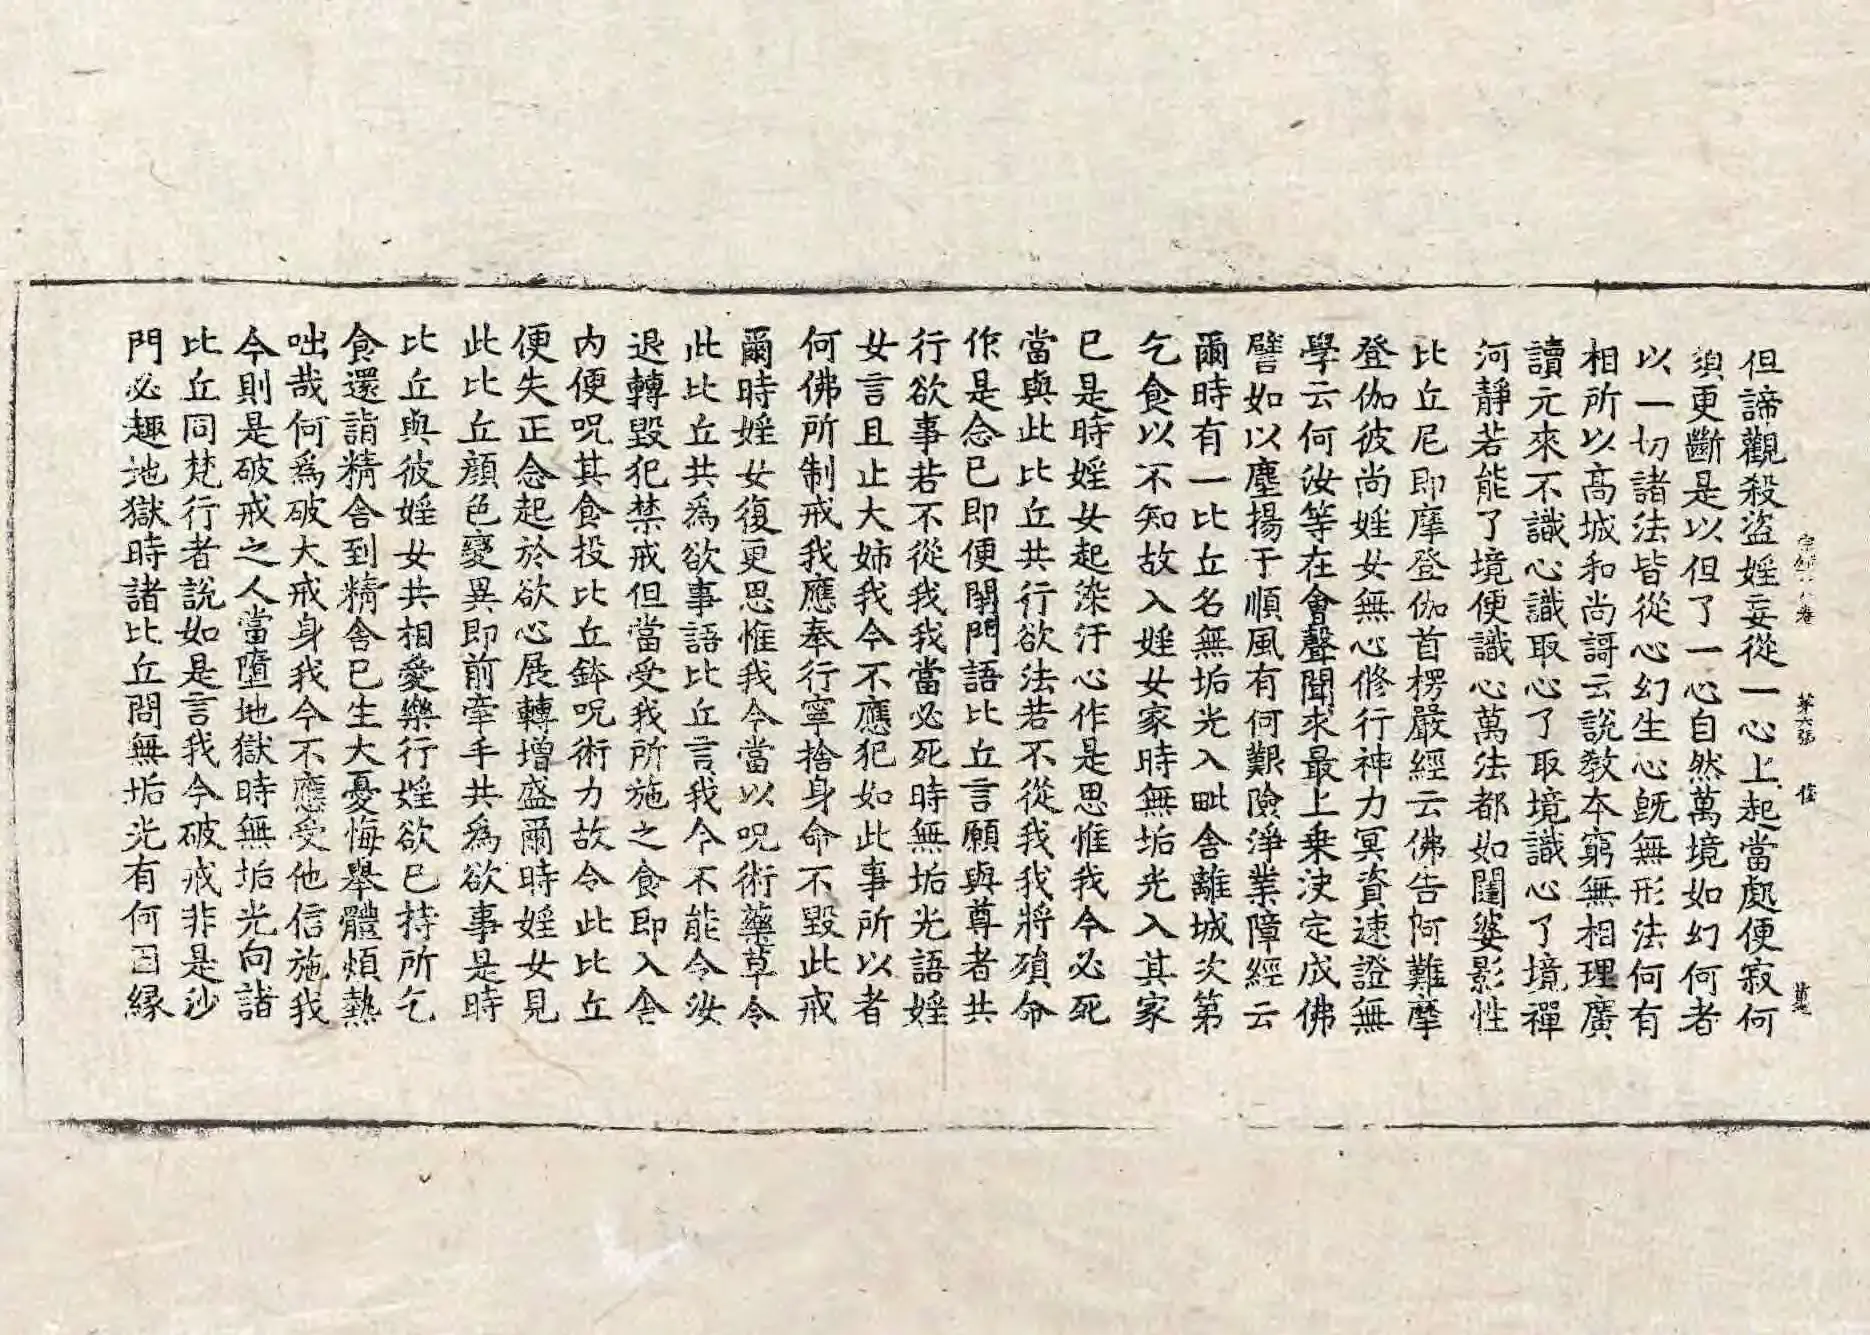 但諦觀殺盜婬妄從一心上起當處便寂何
須更斷是以但了一心自然萬境如幻何者
以一切諸法皆從心幻生心旣無形法何有
相所以高城和尚謌云說教本窮無相理廣
讀元來不識心識取心了取境識心了境禪
河靜若能了境便識心萬法都如闥婆影性
比丘尼即摩登伽首楞嚴經云佛告阿難摩
登伽彼尚婬女無心修行神力冥資速證無
學云何汝等在會聲聞求最上乗決定成佛
譬如以塵揚于順風有何艱險淨業障經云
爾時有一比丘名無垢光入毗舍離城次第
乞食以不知故入婬女家時無垢光入其家
已是時婬女起染汙心作是思惟我今必死
當與此比丘共行欲法若不從我我將殞命
作是念已即便閇門語比丘言願與尊者共
行欲事若不從我我當必死時無垢光語婬
女言且止大姉我今不應犯如此事所以者
何佛所制戒我應奉行寧捨身命不毀此戒
爾時婬女復更思惟我今當以呪術藥草令
此比丘共爲欲事語比丘言我今不能令汝
退轉毀犯禁戒但當受我所施之食即入舍
内便呪其食投比丘鉢呪術力故令此比丘
便失正念起於欲心展轉增盛爾時婬女見
此比丘顔色變異即前牽手共爲欲事是時
比丘與彼婬女共相愛樂行婬欲已持所乞
食還詣精舍到精舍已生大憂悔舉體煩熱
咄哉何爲破大戒身我今不應受他信施我
今則是破戒之人當墮地獄時無垢光向諸
比丘同梵行者說如是言我今破戒非是沙
門必趣地獄時諸比丘問無垢光有何因緣